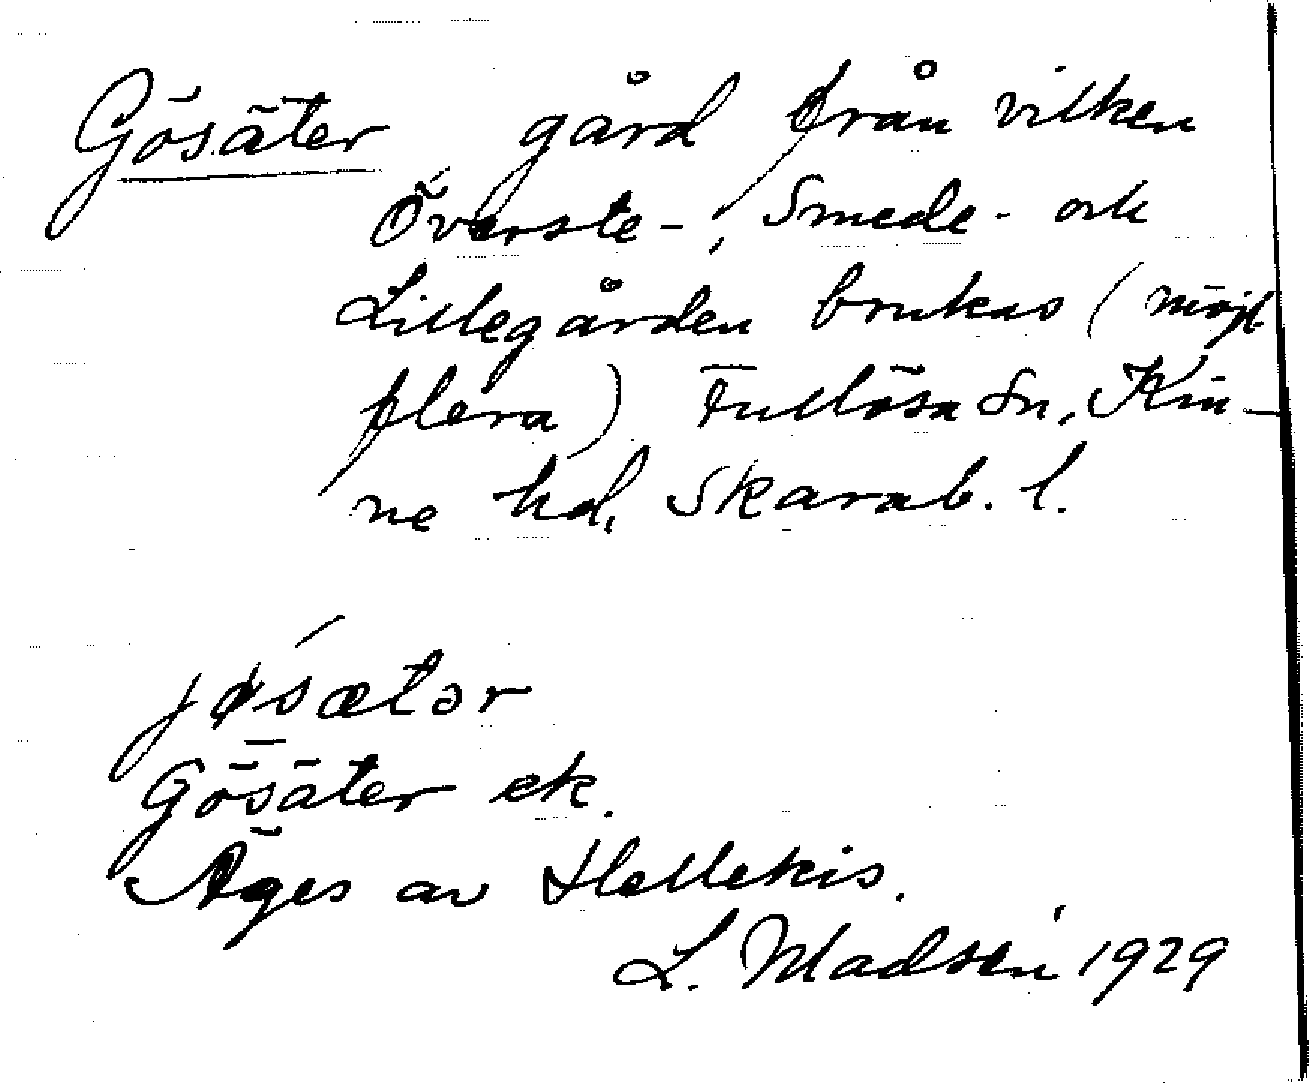 Gösäter gård från vilken
Överste-, Smede- och
Lillegården brukas (möjl
flera) Fullösa Sn, Kin-
ne hd, Skarab. l.
jøsætər
Gösäter ek.
Äges av Hellekis.
L. Madsén 1929